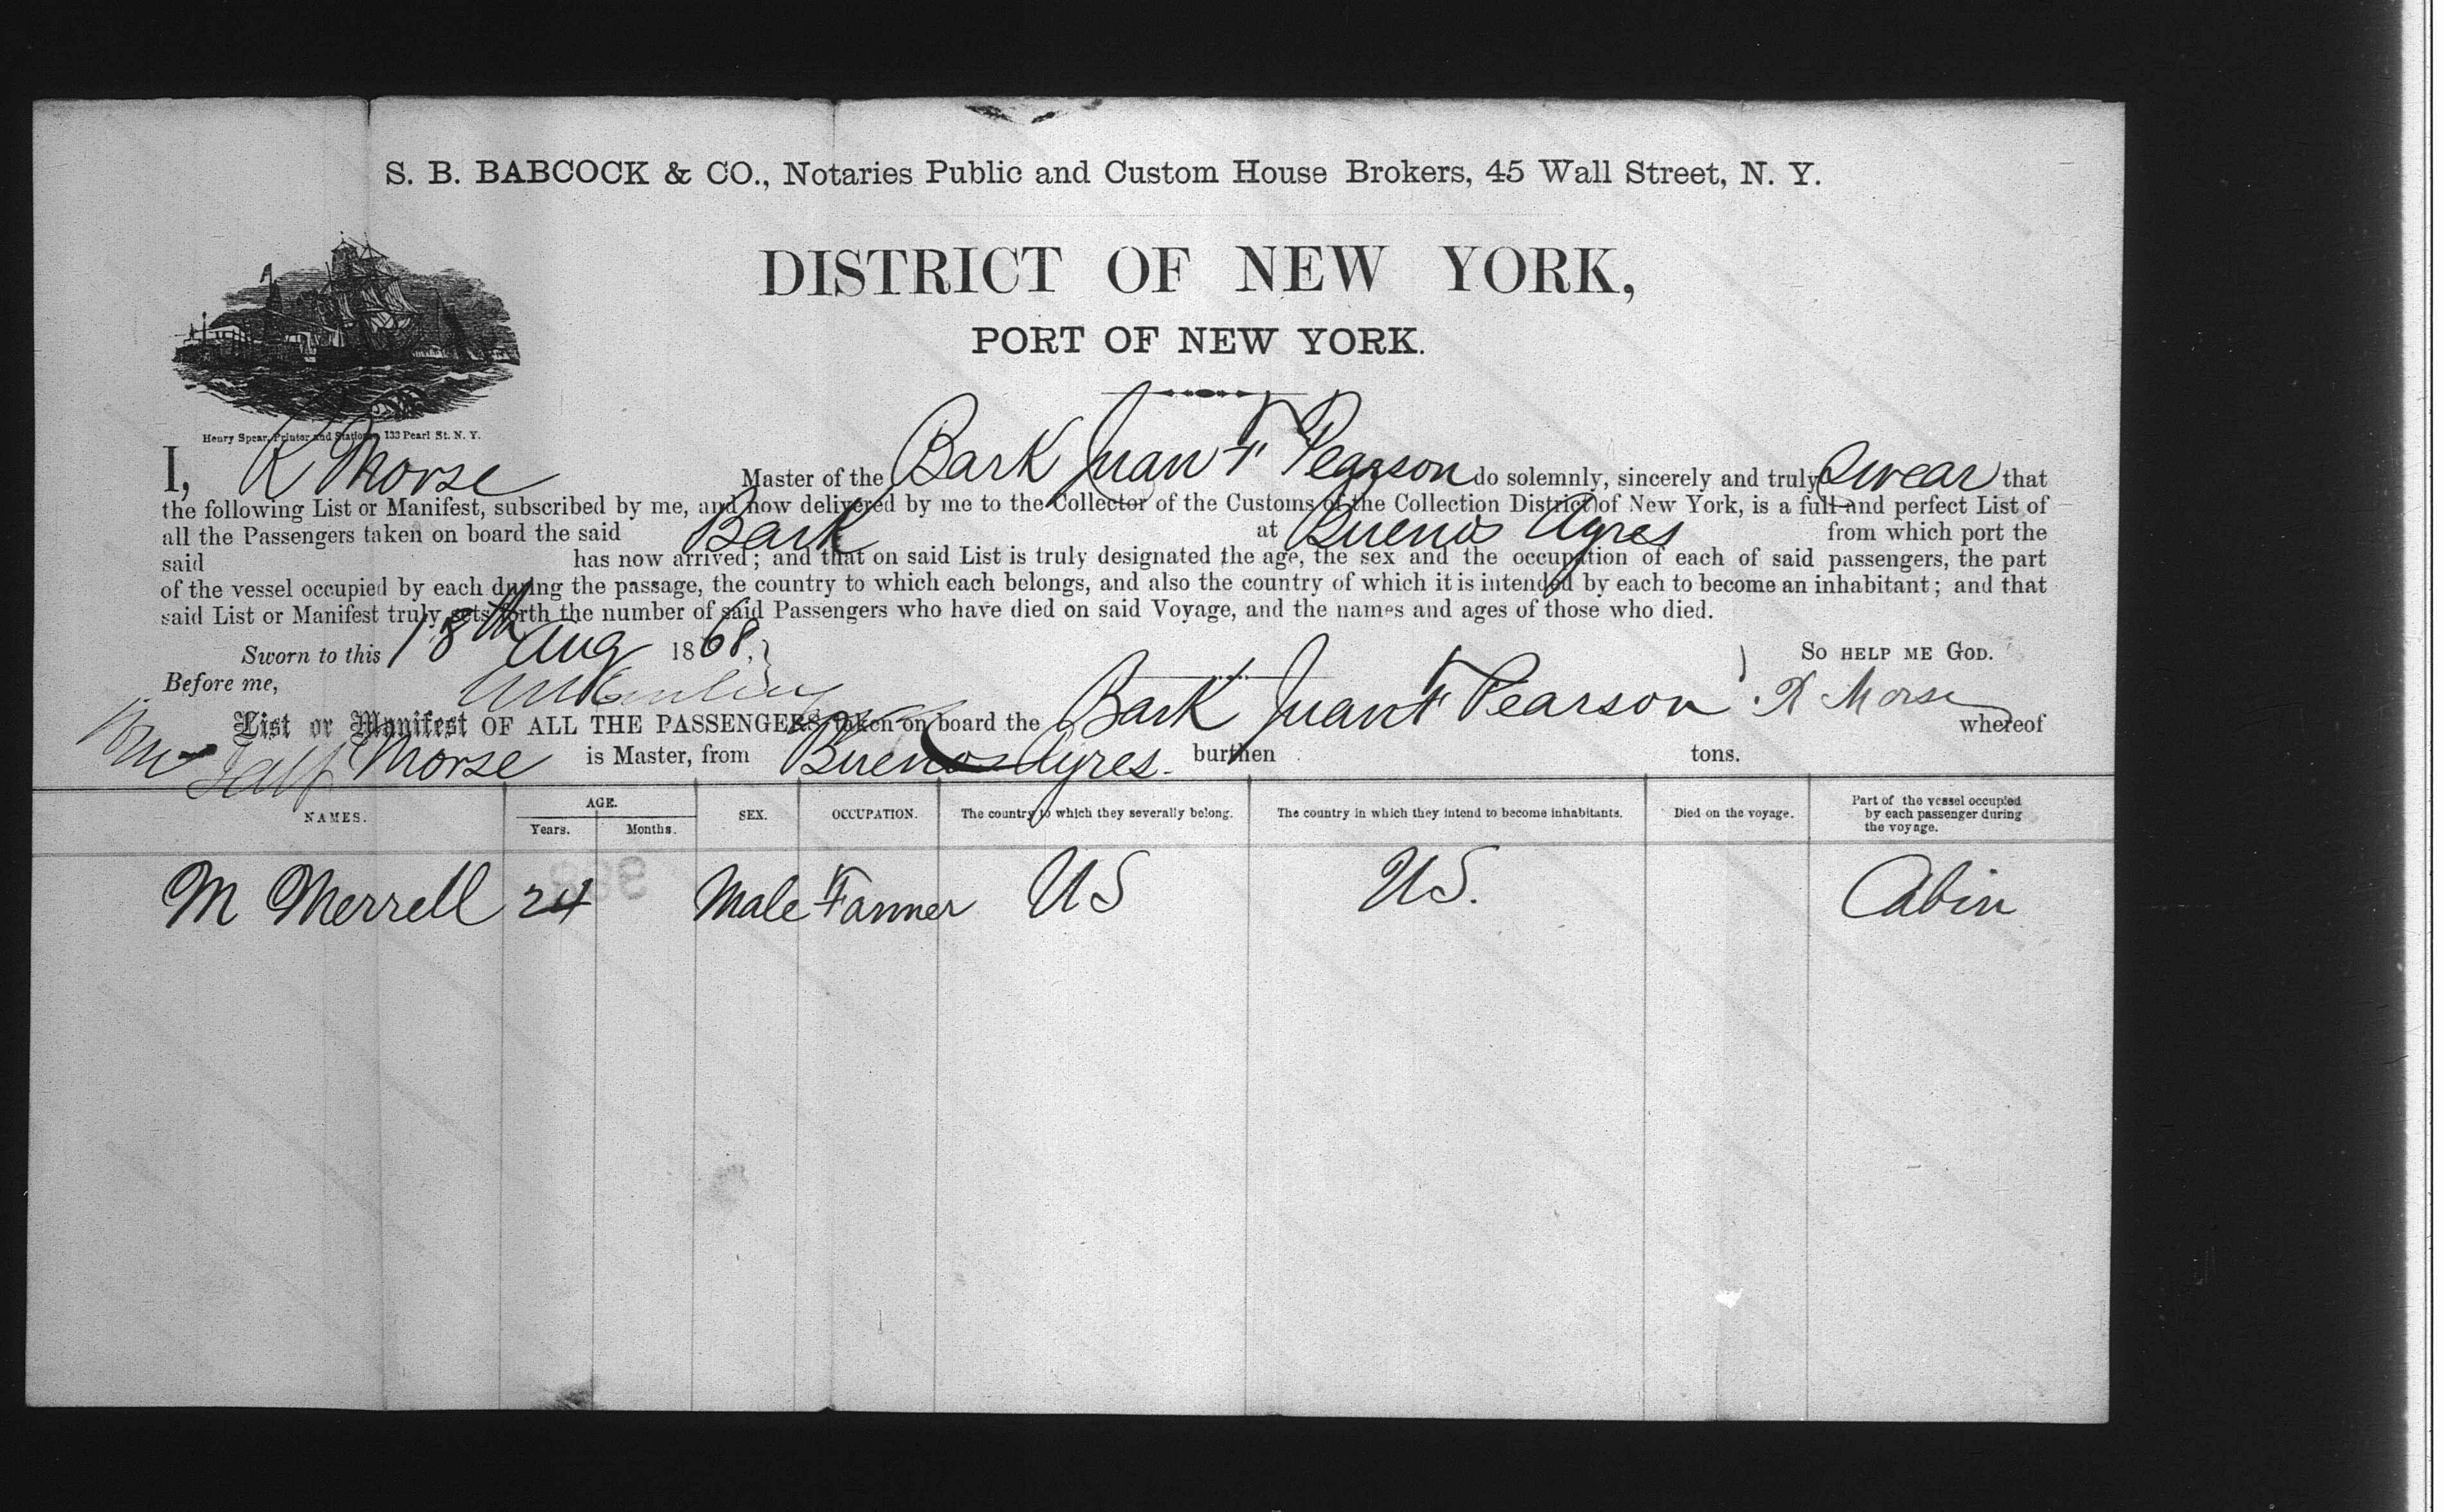 S. B. BABCOCK & CO., Notaries Public and Custom House Brokers, 45 Wall Street, N. Y.
DISTRICT OF NEW YORK,
PORT OF NEW YORK.
Henry Spear, Printer and Stationer, 133 Pearl St. N. Y.
I, R Morse Master of the Bark Juan F Pearson do solemnly, sincerely and truly Swear that
the following List or Manifest, subscribed by me, and now delivered by me to the Collector of the Customs of the Collection District of New York, is a full and perfect List of
all the Passengers taken on board the said Bark at Buenos Ayres from which port the
said has now arrived; and that on said List is truly designated the age, the sex and the occupation of each of said passengers, the part
of the vessel occupied by each during the passage, the country to which each belongs, and also the country of which it is intended by each to become an inhabitant; and that
said List or Manifest truly sets forth the number of said Passengers who have died on said Voyage, and the names and ages of those who died.
Sworn to this 18th Aug 1868, SO HELP ME GOD.
Before me, R Morse
List or Manifest OF ALL THE PASSENGERS taken on board the Bark Juan F Pearson whereof
Morse is Master, from Buenos Ayres. burthen tons.
NAMES. AGE. Years. Months. SEX. OCCUPATION. The country to which they severally belong. The country in which they intend to become inhabitants. Died on the voyage. Part of the vessel occupied by each passenger during the voyage.
M Merrell 24 Male Farmer US US. Cabin